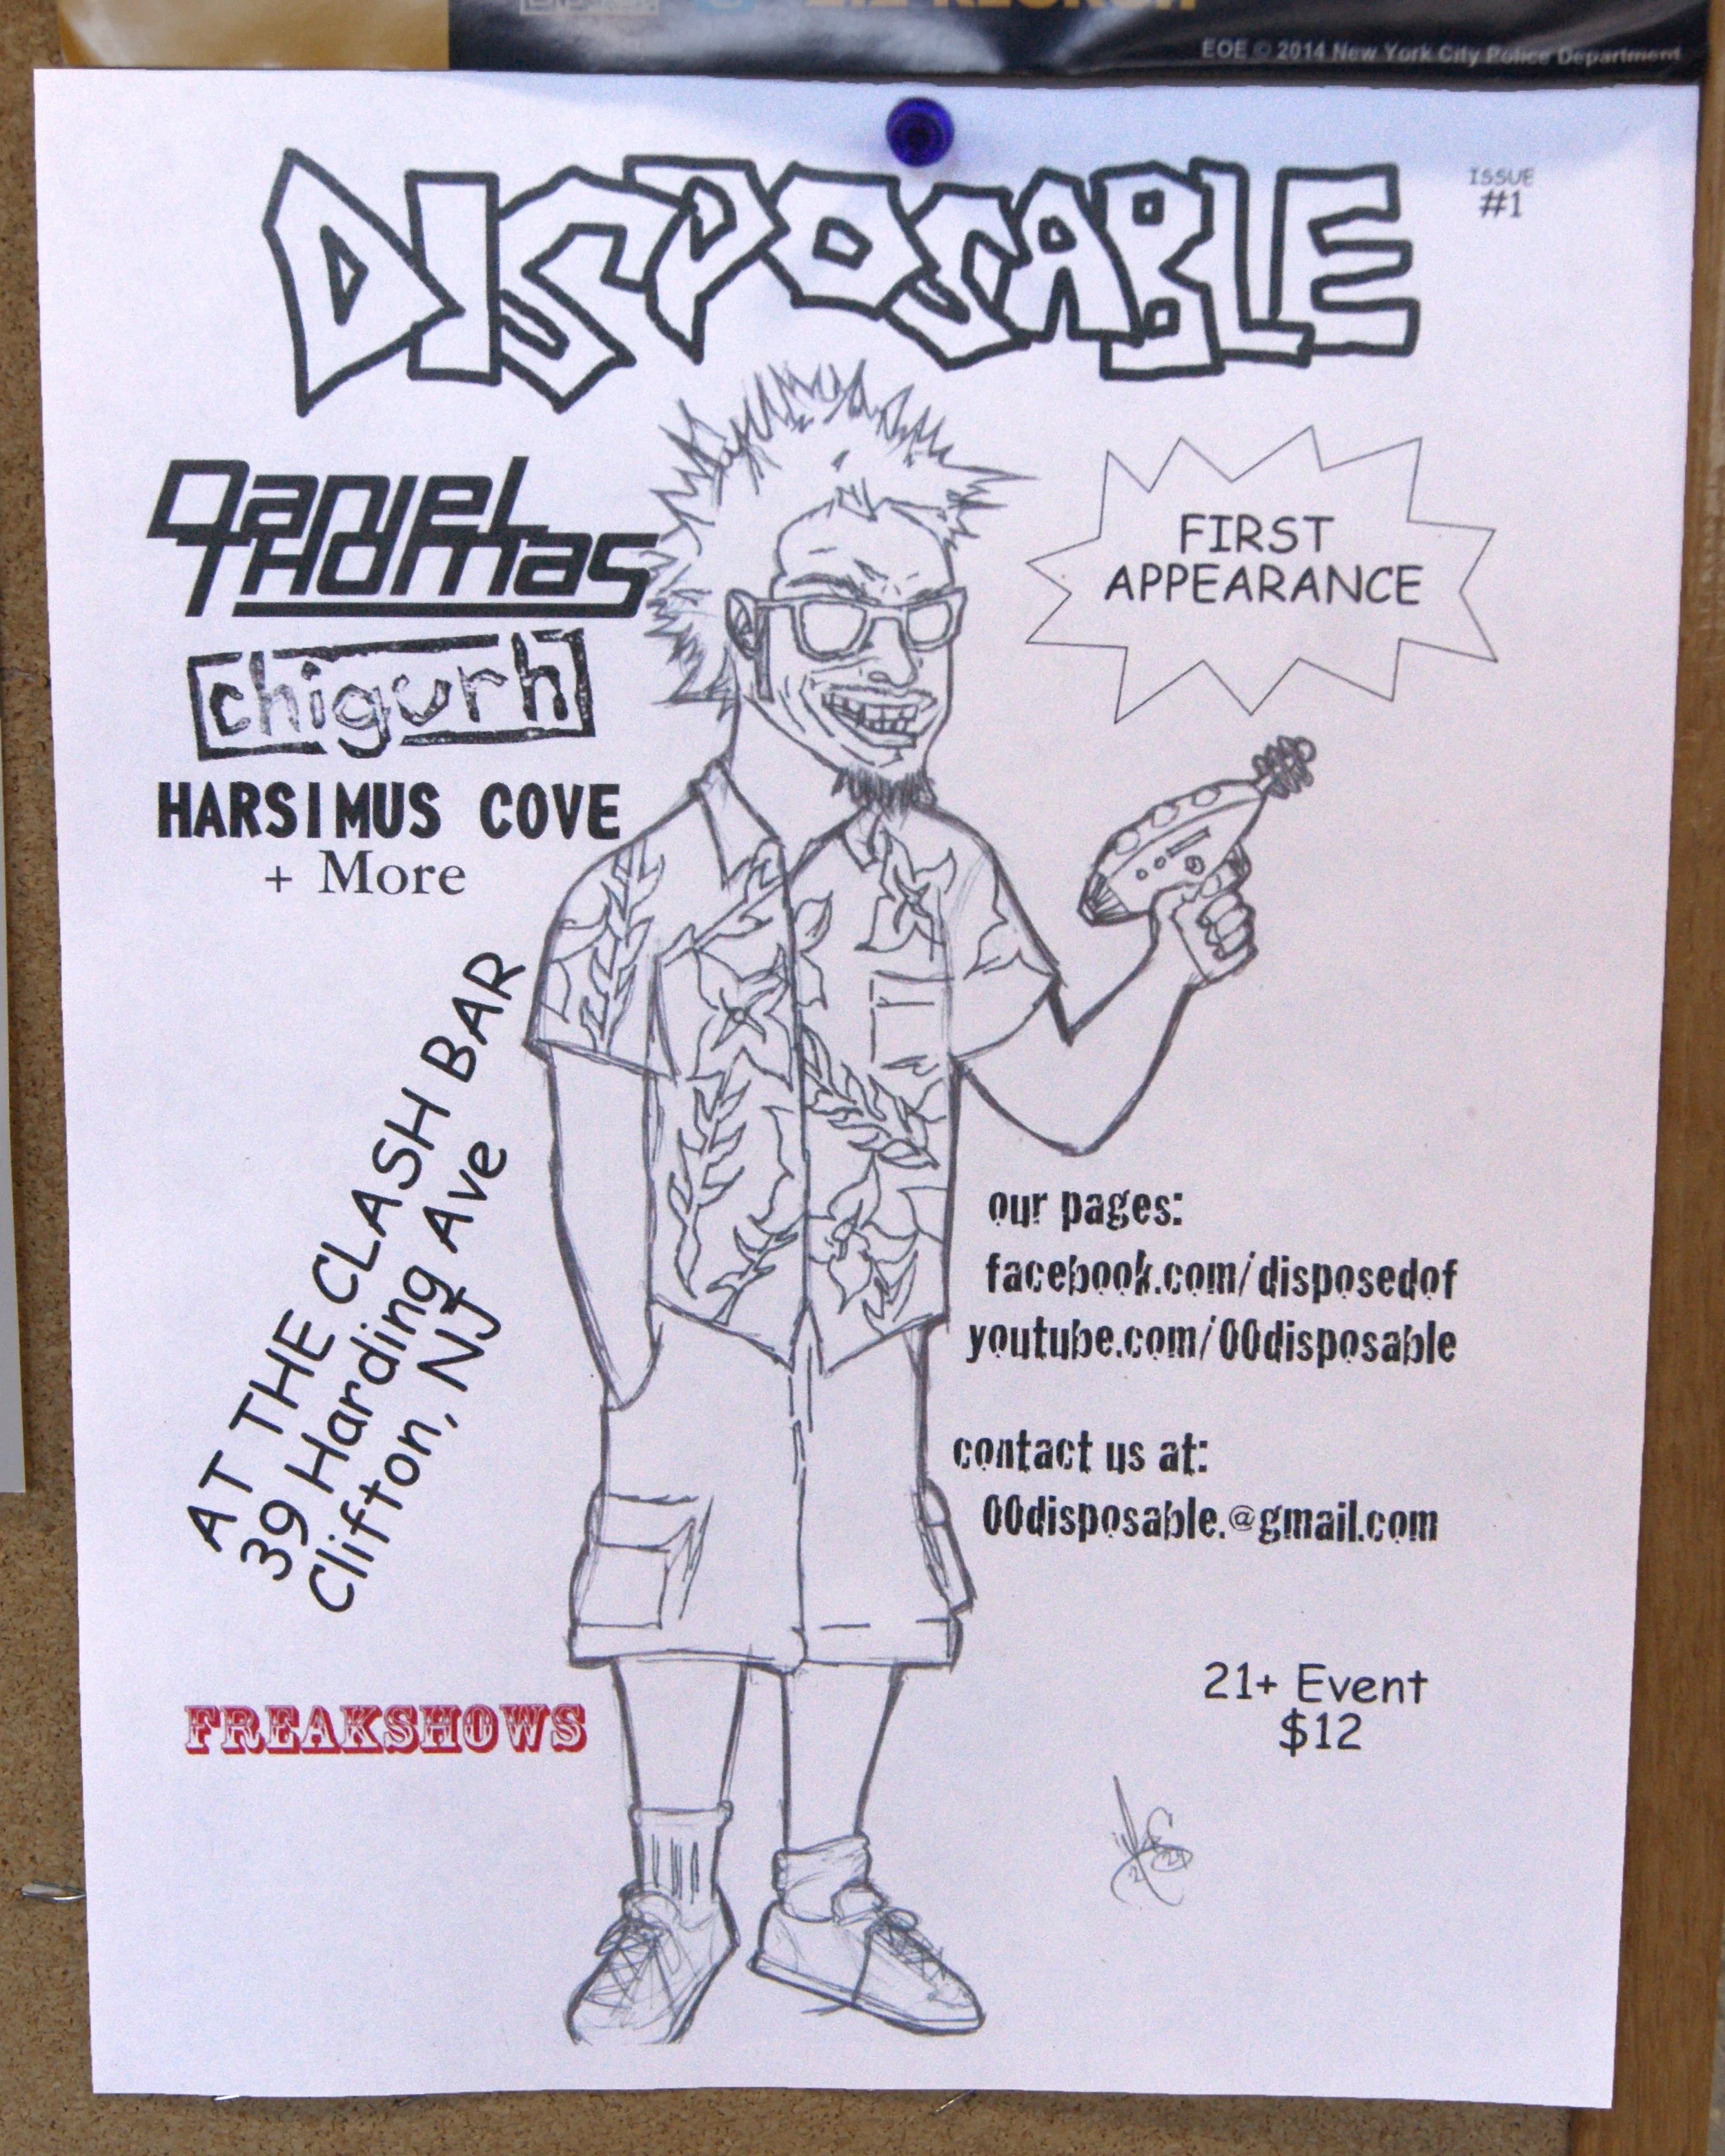 EOE © 2014 New York City Police Department
DISPOSABLE
ISSUE
#1
Daniel
Thomas
chigurh
HARSIMUS COVE
+ More
FIRST
APPEARANCE
AT THE CLASH BAR
39 Harding Ave
Clifton, NJ
our pages:
facebook.com/disposedof
youtube.com/00disposable
contact us at:
00disposable.@gmail.com
FREAKSHOWS
21+ Event
$12